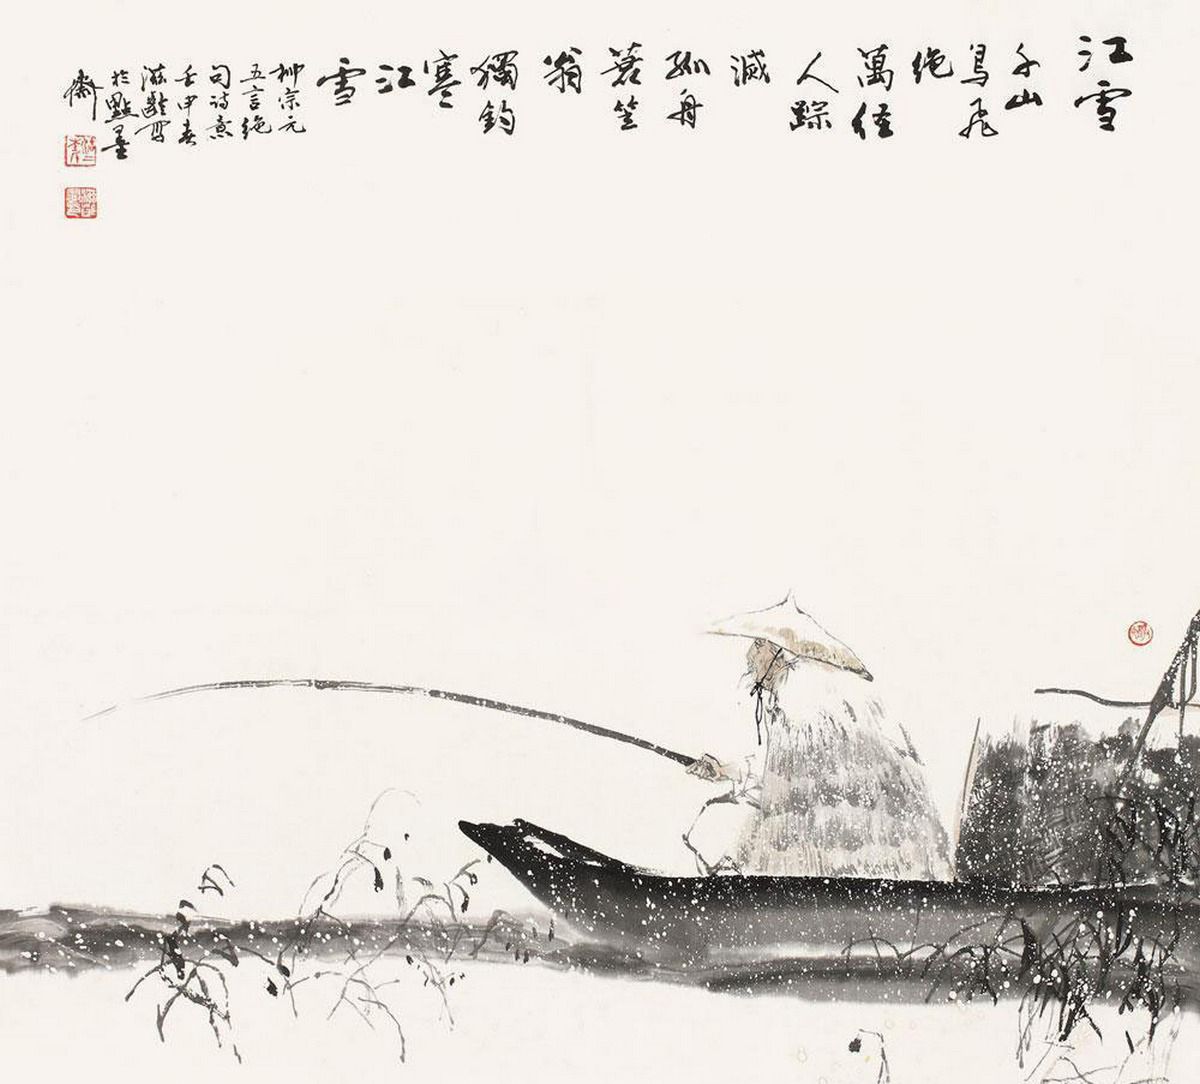 江雪
千山
鳥飛
绝
萬径
人踪
滅
孤舟
蓑笠
翁
獨钓
寒
江
雪
柳宗元
五言绝
句诗意
壬申春
滋龄写
於點墨
齋